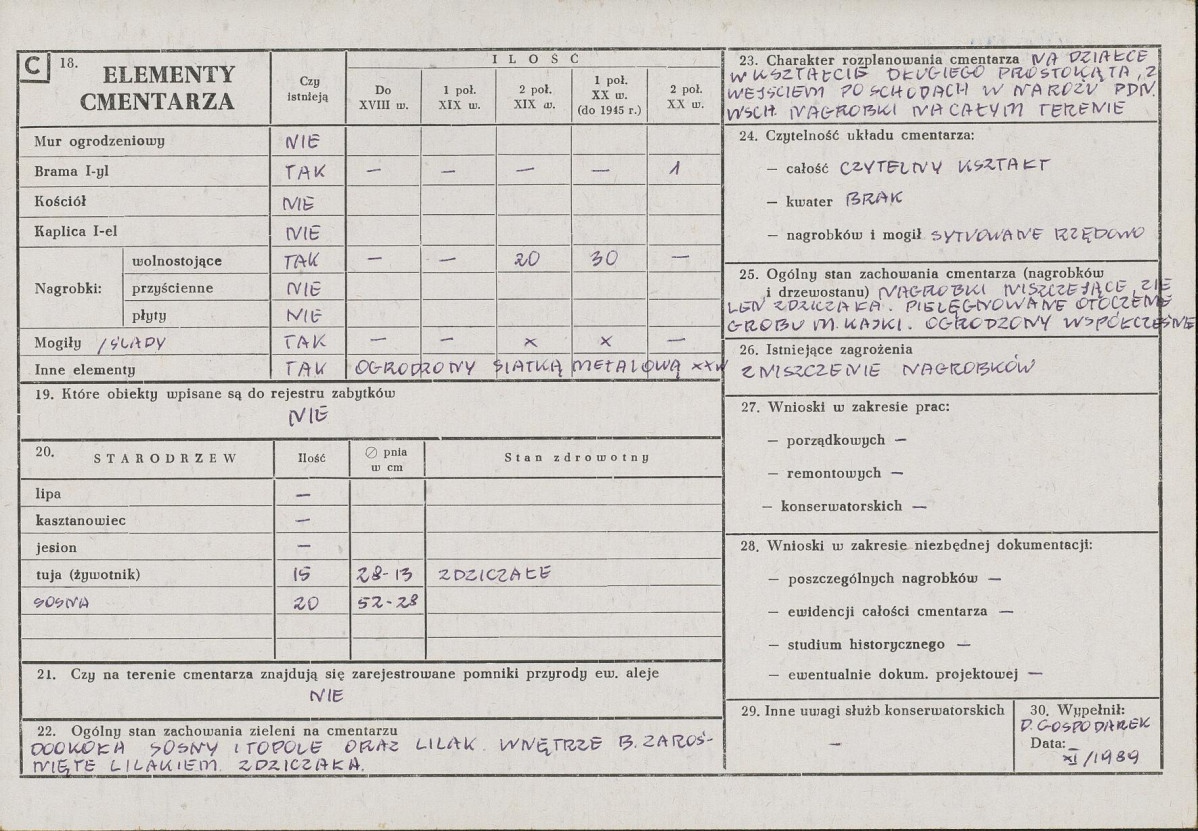 C 18. ELEMENTY CMENTARZA
Czy istnieją
ILOŚĆ
Do XVIII w.
1 poł. XIX w.
2 poł. XIX w.
1 poł. XX w. (do 1945 r.)
2 poł. XX w.
Mur ogrodzeniowy NIE
Brama I-yl TAK — — — — 1
Kościół NIE
Kaplica I-el NIE
Nagrobki:
wolnostojące TAK — — 20 30 —
przyścienne NIE
płyty NIE
Mogiły /ŚLADY TAK — — x x —
Inne elementy TAK OGRODZONY SIATKĄ METALOWĄ XXW
19. Które obiekty wpisane są do rejestru zabytków
NIE
20. STARODRZEW Ilość ∅ pnia w cm Stan zdrowotny
lipa —
kasztanowiec —
jesion —
tuja (żywotnik) 15 28-13 ZDZICZAŁE
SOSNA 20 52-28
21. Czy na terenie cmentarza znajdują się zarejestrowane pomniki przyrody ew. aleje
NIE
22. Ogólny stan zachowania zieleni na cmentarzu
DOOKOŁA SOSNY I TOPOLE ORAZ LILAK. WNĘTRZE B. ZAROŚ-
NIĘTE LILAKIEM. ZDZICZAŁA.
23. Charakter rozplanowania cmentarza NA DZIAŁCE
W KSZTAŁCIE DŁUGIEGO PROSTOKĄTA, Z
WEJŚCIEM PO SCHODACH W NAROŻU PDN.
WSCH. NAGROBKI NA CAŁYM TERENIE
24. Czytelność układu cmentarza:
— całość CZYTELNY KSZTAŁT
— kwater BRAK
— nagrobków i mogił SYTUOWANE RZĘDOWO
25. Ogólny stan zachowania cmentarza (nagrobków
i drzewostanu) NAGROBKI NISZCZEJĄCE, ZIE
LEŃ ZDZICZAŁA. PIELĘGNOWANE OTOCZENIE
GROBU M. KAJKI. OGRODZONY WSPÓŁCZEŚNIE
26. Istniejące zagrożenia
ZNISZCZENIE NAGROBKÓW
27. Wnioski w zakresie prac:
— porządkowych —
— remontowych —
— konserwatorskich —
28. Wnioski w zakresie niezbędnej dokumentacji:
— poszczególnych nagrobków —
— ewidencji całości cmentarza —
— studium historycznego —
— ewentualnie dokum. projektowej —
29. Inne uwagi służb konserwatorskich
—
30. Wypełnił:
D. GOSPODAREK
Data:
XI/1989